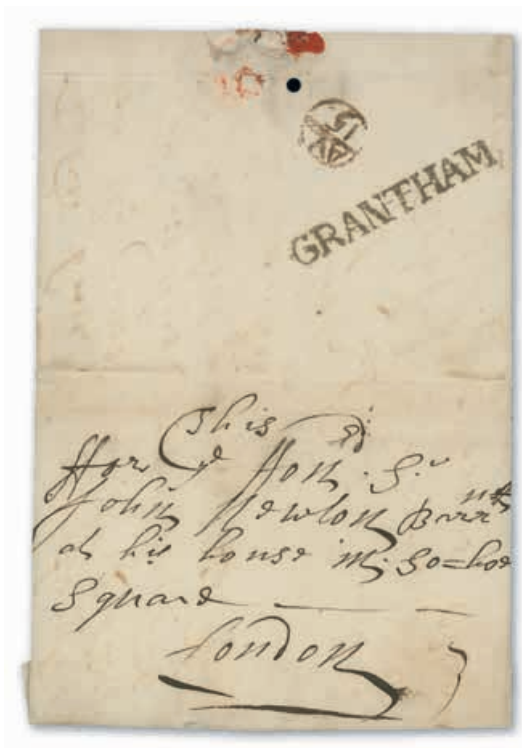 GRANTHAM
This
ffor ye Hon. Sr
John Newton Barrntt
at his house in So=hoe
Square
London